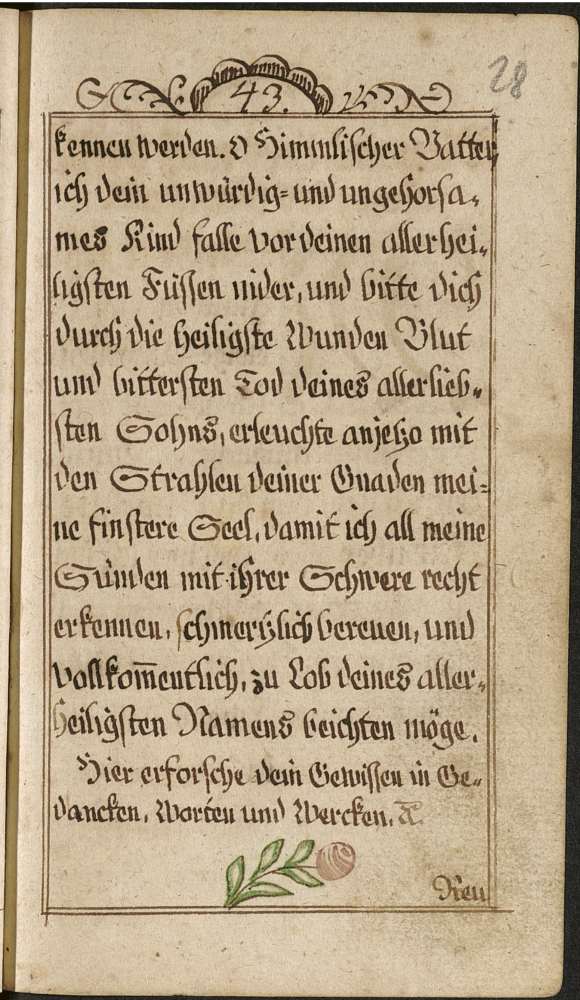 28
43.
kennen werden. O Himmlischer Vatter
ich dein unwürdig= und ungehorsa„
mes Kind falle vor deinen allerhei„
ligsten Füssen nider, und bitte dich
durch die heiligste Wunden Blut
und bittersten Tod deines allerlieb„
sten Sohns, erleuchte anjetzo mit
den Strahlen deiner Gnaden mei=
ne finstere Seel, damit ich all meine
Sünden mit ihrer Schwere recht
erkennen, schmertzlich bereuen, und
vollkom̅entlich, zu Lob deines aller„
heiligsten Namens beichten möge.
Hier erforsche dein Gewissen in Ge„
dancken, Worten und Wercken. &.
Reu